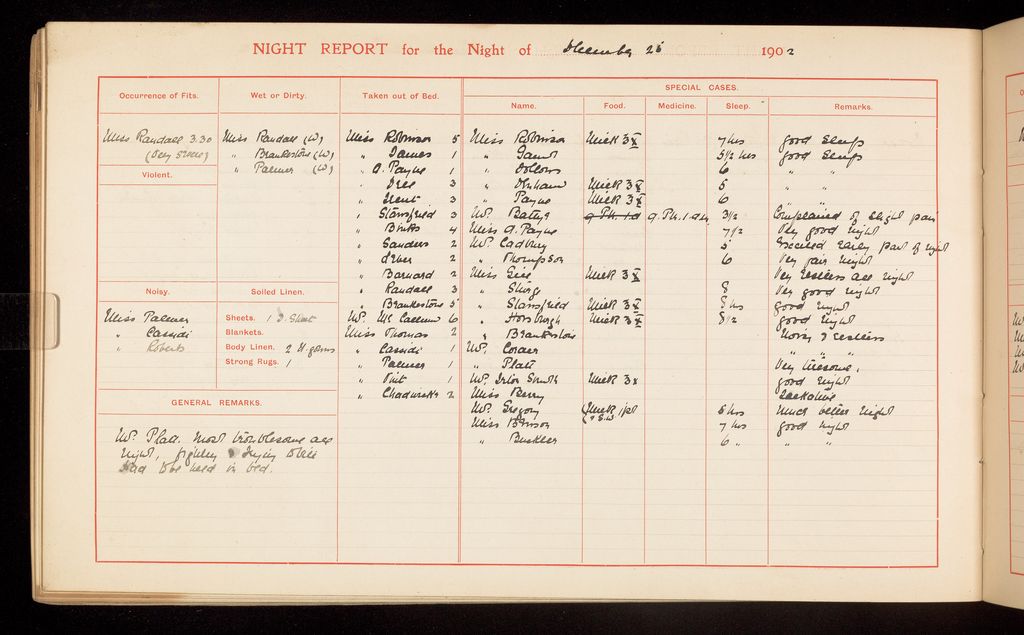 NIGHT REPORT for the Night of December 26 1902
Occurrence of Fits.
Miss Randall 3.30
(Very severe)
Violent.
Noisy.
Miss Palmer
" Cassidi
" Roberts
Wet or Dirty.
Miss Randall (W)
" Brankestone (W)
" Palmer (W)
Soiled Linen.
Sheets. 1
Blankets.
Body Linen. 2
Strong Rugs. 1
GENERAL REMARKS.
Mr Platt. Most troublesome all
night, trying to
had to be held in bed.
Taken out of Bed.
Miss Robinson 5
" James 1
" A. Payne 1
3
3
" Stansfield 3
" Binks 4
" Sanders 2
2
" Barnard 2
" Randall 3
" Brankestone 5
Mr McCallum 6
Miss Thomas 2
" Cassidi 1
" Palmer 1
1
" Chadwick 2
SPECIAL CASES.
Name. Food. Medicine. Sleep. Remarks.
Miss Robinson Milk 3x 7 hrs good sleep
" 5½ hrs good sleep
" 6 " "
" Milk 3x 5 " "
" Payne Milk 3x 6 " "
Mr 3½ Complained of slight pain
Miss A. Payne 7½ Very good night
Mr Cadbury 5 Excited early part of night
" Thompson 6 Very fair night
Miss Milk 3x Very restless all night
" 8 Very good night
" Stansfield Milk 3x 8 hrs good night
" Horsburgh Milk 3x 8½ good night
" Brankestone Noisy & restless
Mr " "
" Platt Very tiresome.
Mr Smith Milk 3x good night
Miss Berry Talkative
Mr Gregory Milk 1pt 5 hrs much better night
Miss 7 hrs good night
" Buckler 6 " " "